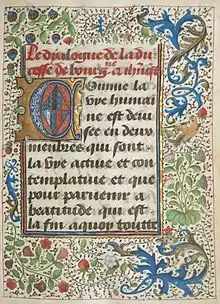 Le dialogue de la du
cesse de bourg.ne a ihūcrist
Comme la
vye humai
ne est deui
see en deux
membres qui sont
la vye actiue et con
templatiue et que
pour paruenir a
beatitude qui est
la fin a quoy toutte